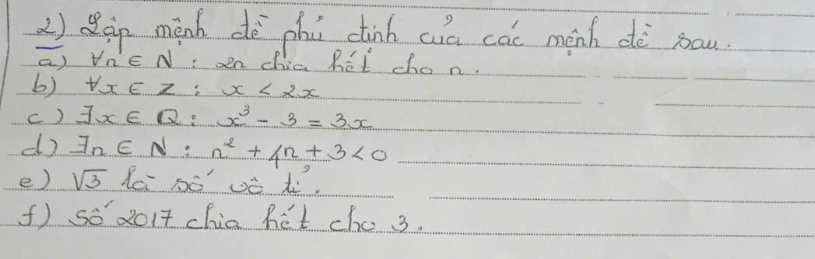 2) Lập mệnh đề phủ định của các mệnh đề sau.
a) ∀n ∈ N : 2n chia hết cho n.
b) ∀x ∈ Z : x < 2x
c) ∃x ∈ Q : x³ - 3 = 3x
d) ∃n ∈ N : n² + 4n + 3 < 0
e) √3 là số vô tỉ.
f) số 2017 chia hết cho 3.